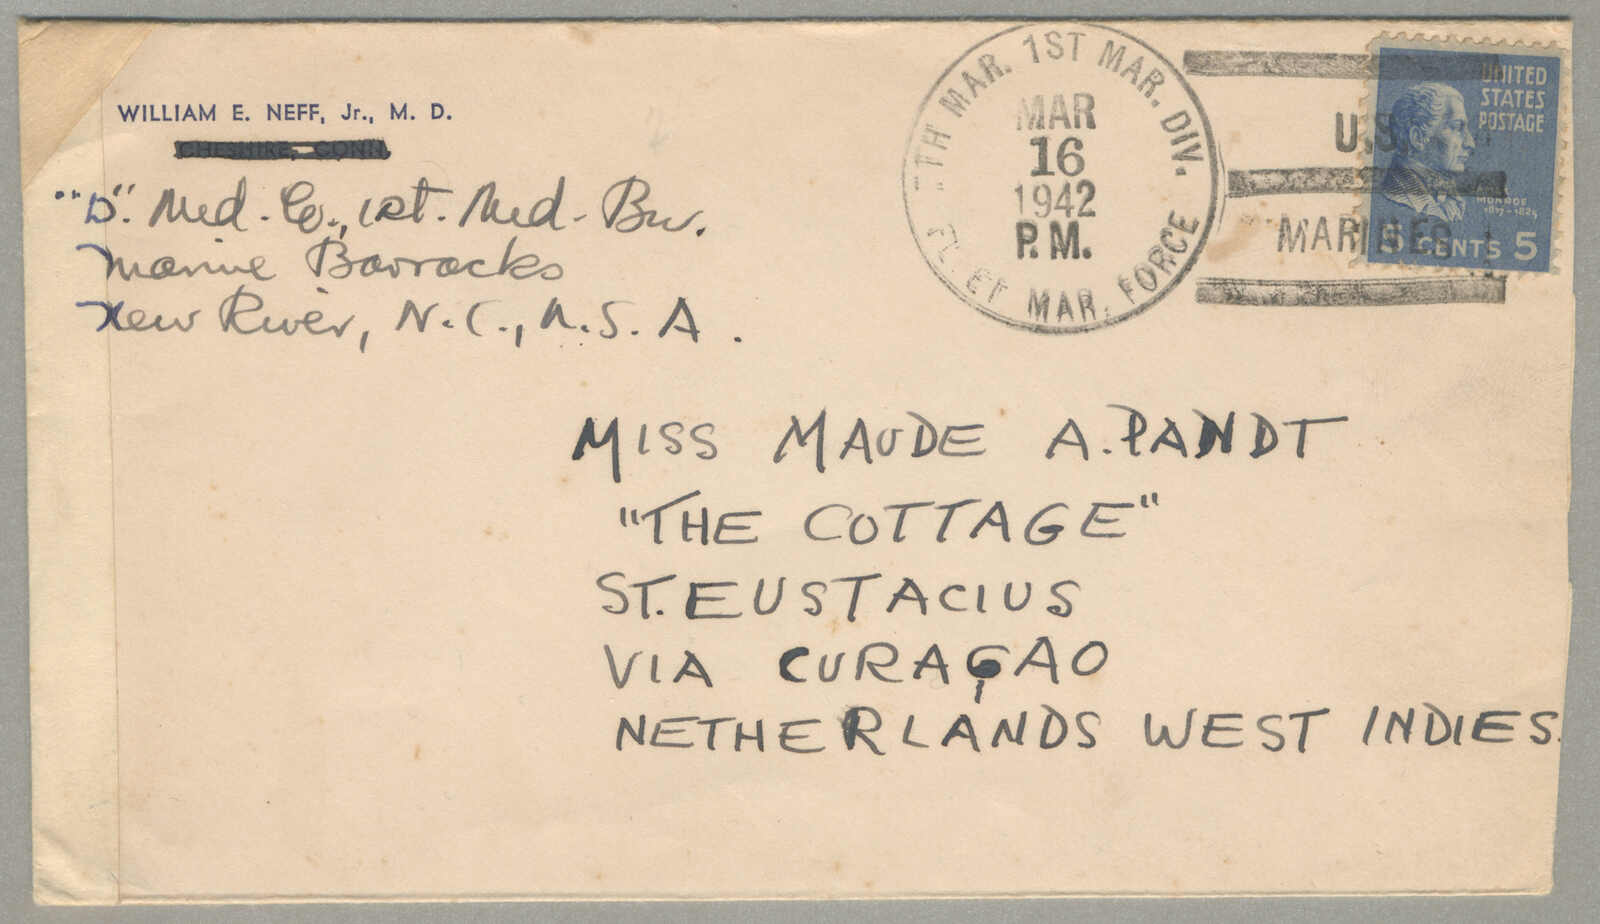 WILLIAM E. NEFF, Jr., M. D.
CHESHIRE, CONN.
"D". Med. Co., 1st. Med. Bn.
Marine Barracks
New River, N.C., U.S.A.
TH MAR. 1ST MAR. DIV.
FLEET MAR. FORCE
MAR
16
1942
P.M.
U.S.
MARINES
UNITED
STATES
POSTAGE
MONROE
1817-1825
5 CENTS 5
MISS MAUDE A. PANDT
"THE COTTAGE"
ST. EUSTACIUS
VIA CURAÇAO
NETHERLANDS WEST INDIES.